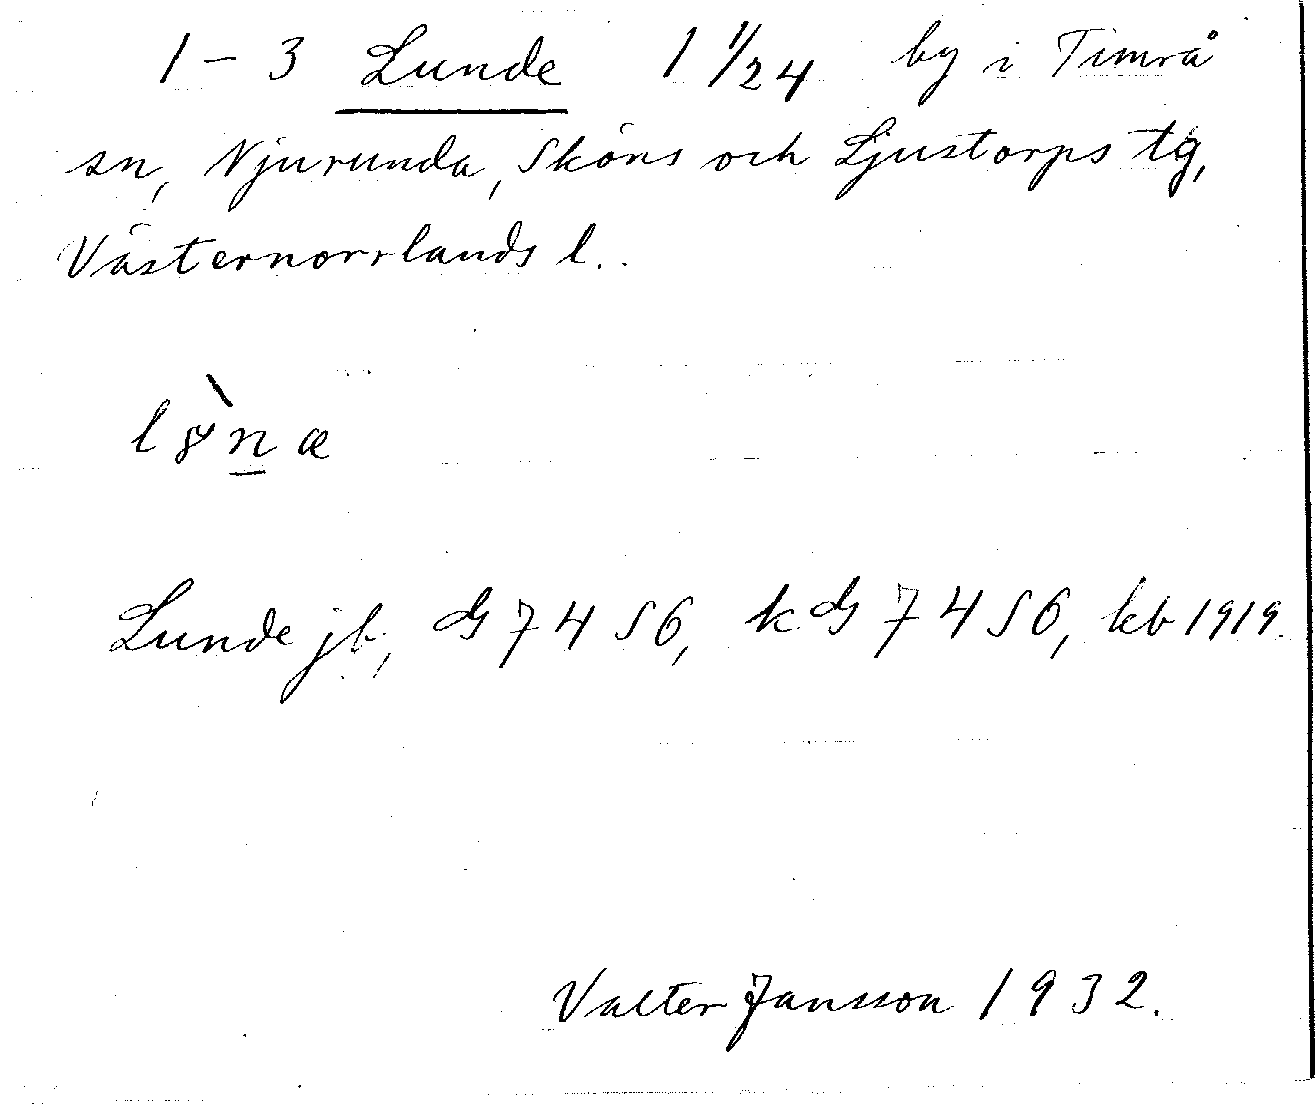 1-3 Lunde 1 1/24 by i Timrå
sn, Njurunda, Sköns och Ljustorps tg,
Västernorrlands l.
Lunde jb, ds 7456, kds 7456, kb 1919.
Valter Jansson 1932.